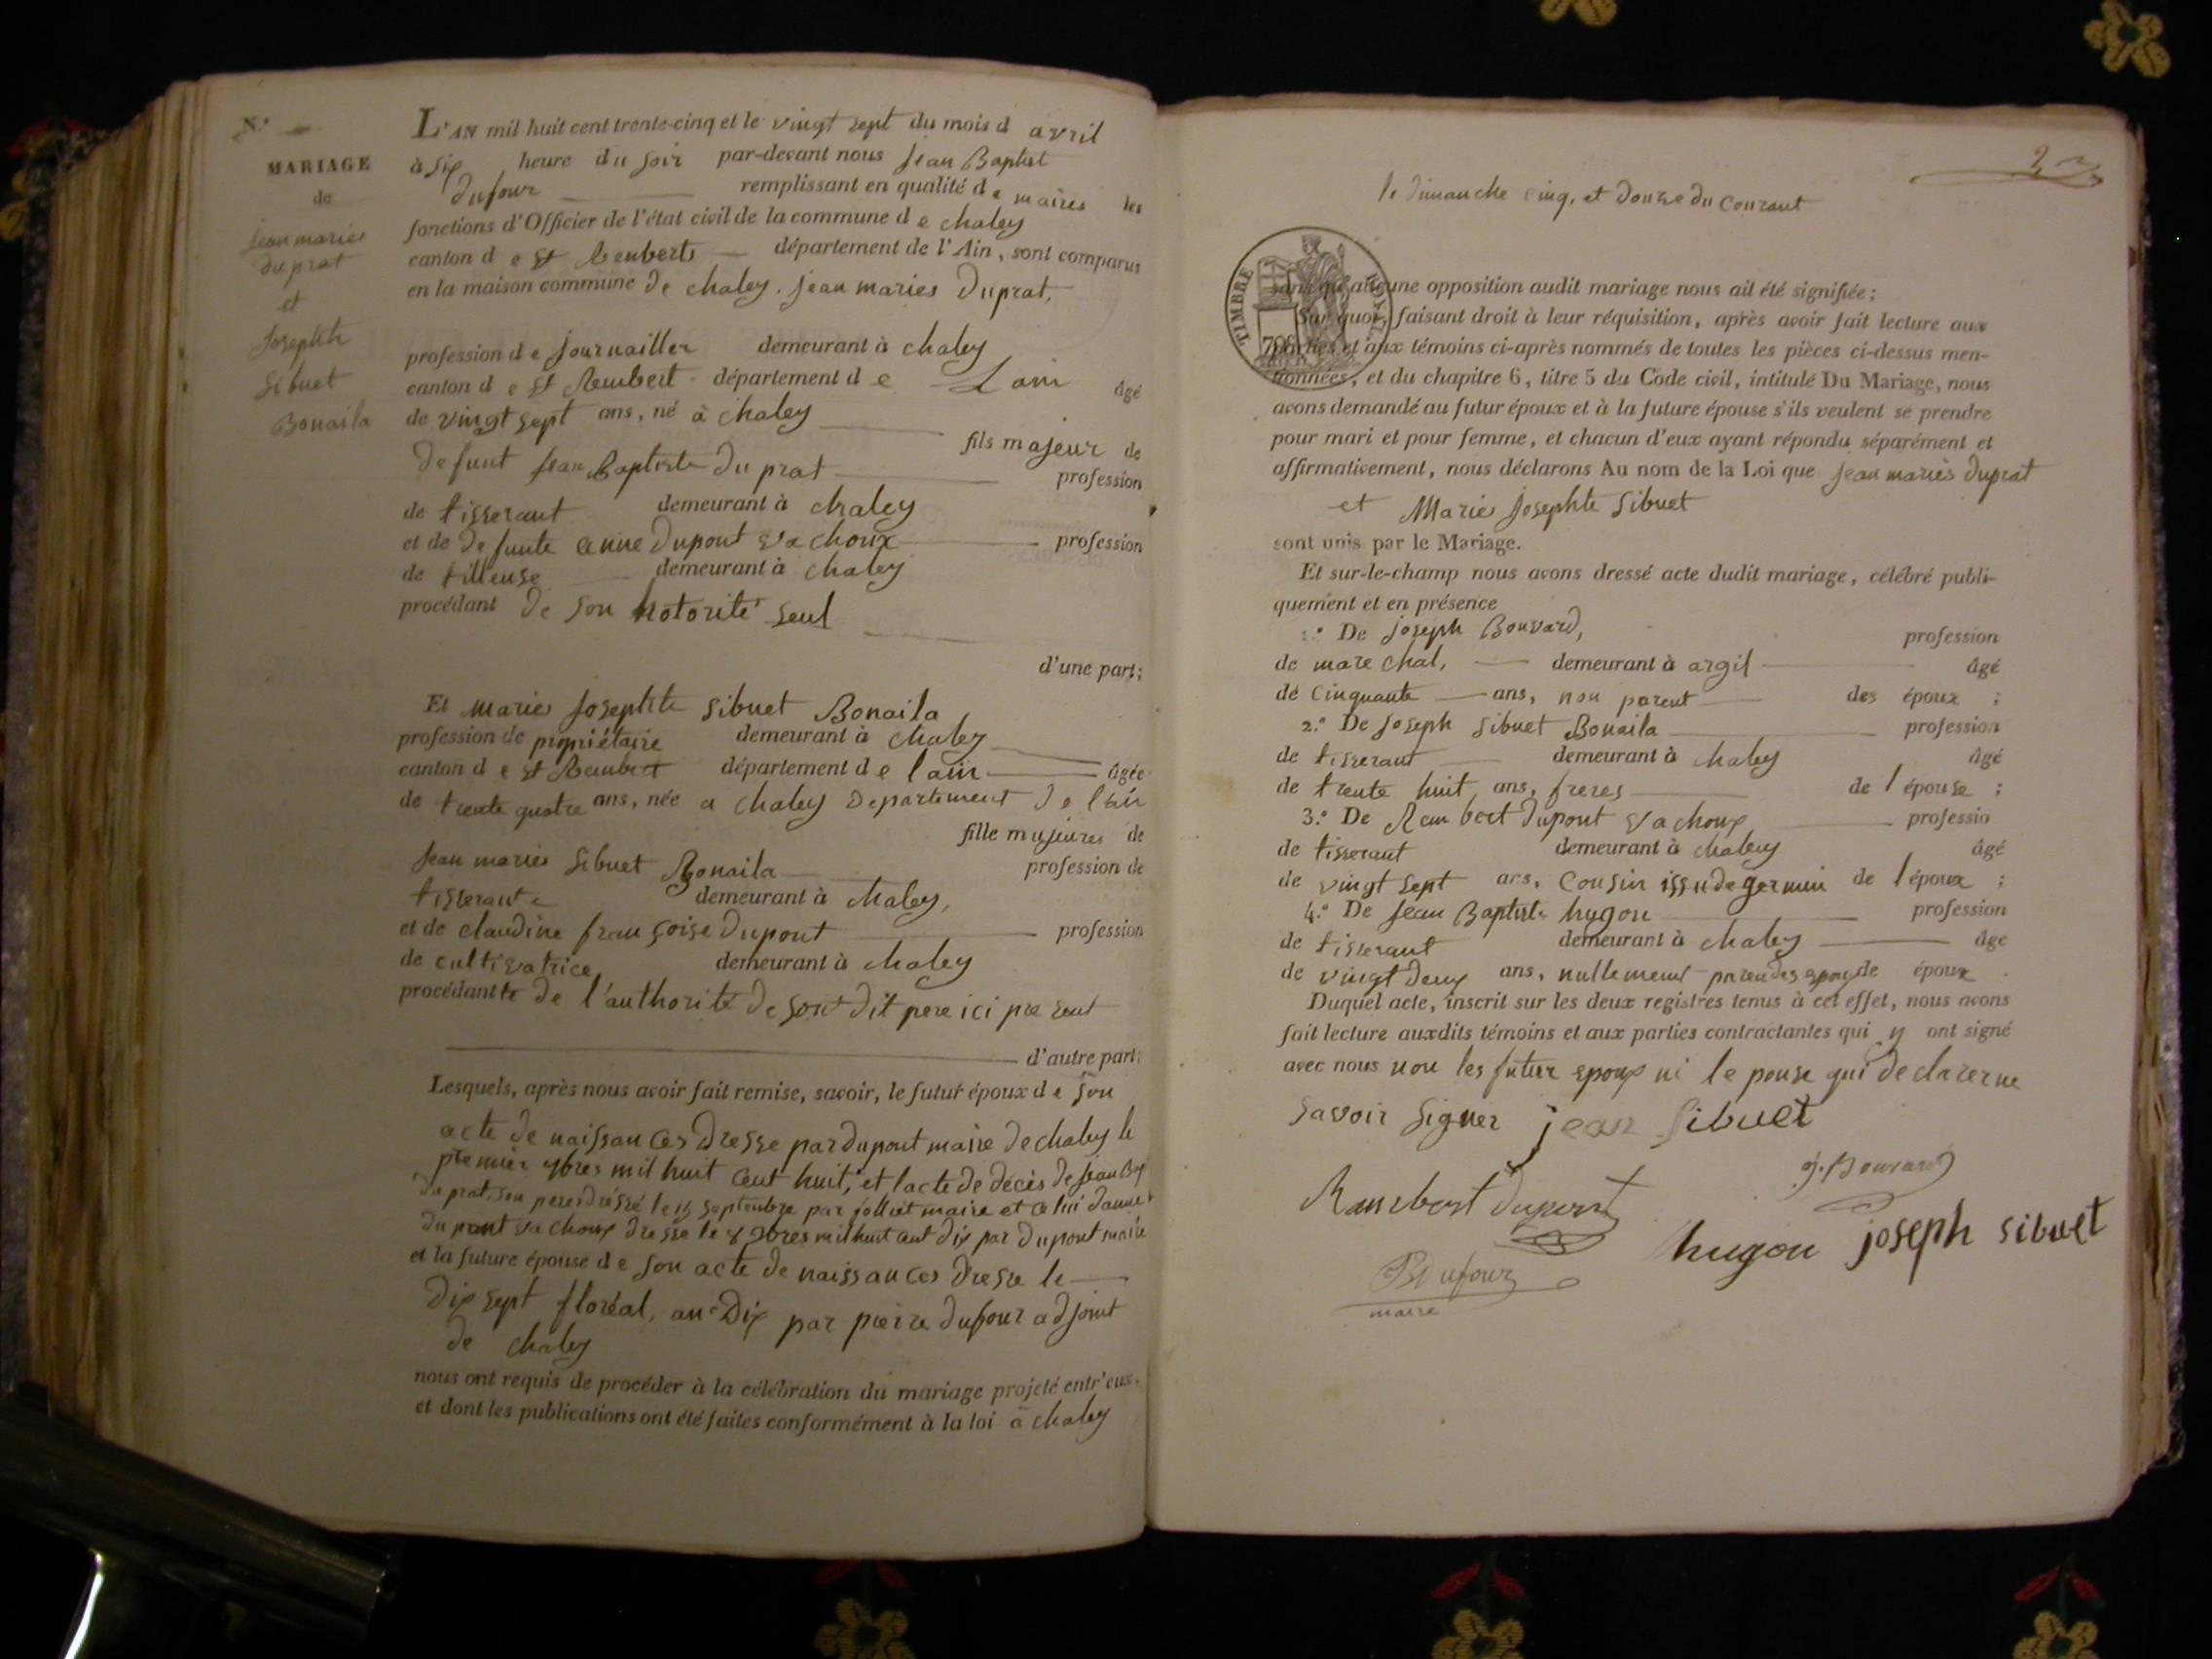 N.°
MARIAGE
de
jean maries
duprat
et
Josephte
Sibuet
Bonaila
L'AN mil huit cent trente-cinq et le vingt sept du mois d avril
à six heure du soir par-devant nous jean Baptist
dufour remplissant en qualité de maires les
fonctions d'Officier de l'état civil de la commune de chaley
canton de St Renberts département de l'Ain, sont comparus
en la maison commune de chaley. jean maries Duprat,
profession de journailler demeurant à chaley
canton de St Rembert département de Lain âgé
de vingt sept ans, né à chaley
fils majeur de
defunt jean Baptiste Du prat profession
de tisserant demeurant à chaley
et de defunte anne Dupont vachoux profession
de filleuse demeurant à chaley
procédant de son notorité seul
d'une part;
Et maries Josephte Sibuet Bonaila
profession de propriétaire demeurant à chaley
canton de St Rambert département de lain âgée
de trente quatre ans, née a chaley Departement De lain
fille majeures de
jean maries Sibuet Bonaila profession de
tisserante demeurant à chaley,
et de claudine françoise Dupont profession
de cultivatrice demeurant à chaley
procédantte de l'authorité de son dit pere ici present
d'autre part;
Lesquels, après nous avoir fait remise, savoir, le futur époux de son
acte de naissances Dresse par dupont maire de chaley le
premier mil huit cent huit, et lacte de décès de jean Bap
du prat, son peres dressé le septembre par jolliet maire et celui danne
du pont vachoux dresse le 8 9bres mil huit cent dix par Dupont maire
et la future épouse de son acte de naissances dresse le
Dix sept floréal, an Dix par pierre dufour adjoint
de chaley
nous ont requis de procéder à la célébration du mariage projeté entr'eux,
et dont les publications ont été faites conformément à la loi à chaley
le dimanche cinq, et douze du courant
TIMBRE ROYAL
sans qu'aucune opposition audit mariage nous ait été signifiée;
Sur quoi, faisant droit à leur réquisition, après avoir fait lecture aux
parties et aux témoins ci-après nommés de toutes les pièces ci-dessus men-
tionnées, et du chapitre 6, titre 5 du Code civil, intitulé Du Mariage, nous
avons demandé au futur époux et à la future épouse s'ils veulent se prendre
pour mari et pour femme, et chacun d'eux ayant répondu séparément et
affirmativement, nous déclarons Au nom de la Loi que jean maries duprat
et Maries Josephte Sibuet
sont unis par le Mariage.
Et sur-le-champ nous avons dressé acte dudit mariage, célébré publi-
quement et en présence
1.° De joseph Bouvard, profession
de mare chal, demeurant à argil âgé
de cinquante ans, non parent des époux ;
2.° De joseph Sibuet Bonaila profession
de tisserant demeurant à chaley âgé
de trente huit ans, freres de l épouse ;
3.° De Rambert Dupont vachoux professio
de tisserant demeurant à chaley âgé
de vingt sept ans, cousin issu de germin de l époux ;
4.° De jean Baptiste hugon profession
de tisserant demeurant à chaley âge
de vingt deux ans, nullement de époux .
Duquel acte, inscrit sur les deux registres tenus à cet effet, nous avons
fait lecture auxdits témoins et aux parties contractantes qui y ont signé
avec nous non les futur epoux ni le pouse qui declarerne
savoir signer jean Sibuet
j. Bouvard
Rambert Dupont
hugon joseph sibuet
BDufour
maire